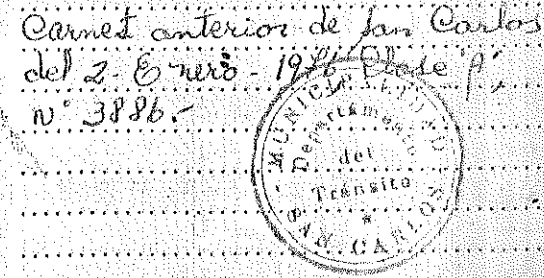 Carnet anterior de San Carlos
del 2- Enero - 1976 Clase "A",
N° 3886.-
MUNICIPALIDAD
Departamento
del
Tránsito
SAN CARLOS